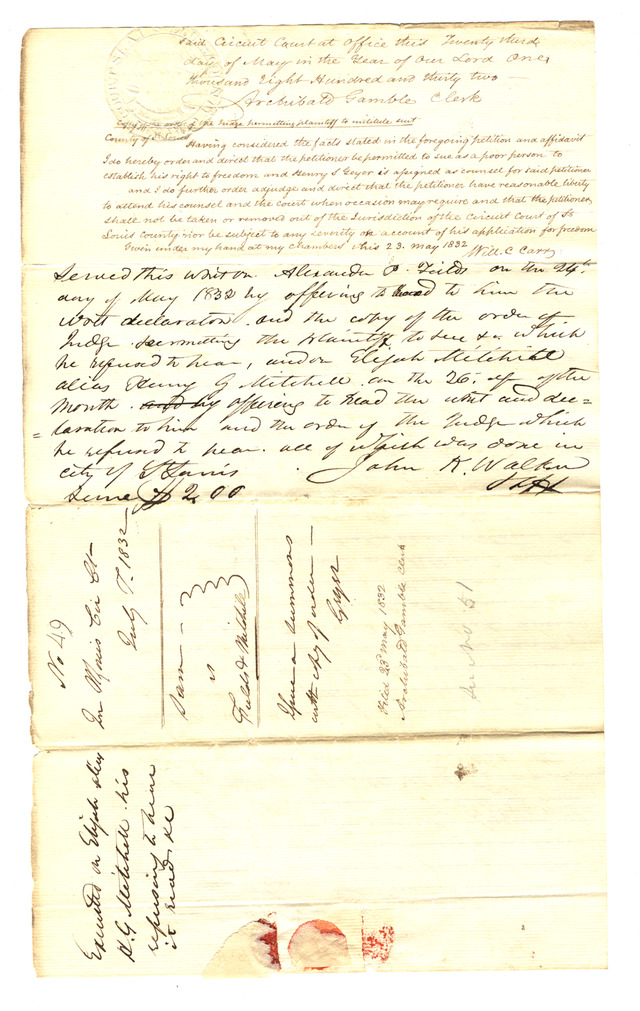 said Circuit Court at office this Twenty third
day of May in the Year of Our Lord One
thousand Eight Hundred and thirty two —
Archibald Gamble Clerk
Copy of the order of the Judge permitting plaintiff to institute suit
County of St Louis
Having considered the facts stated in the foregoing petition and affidavit
I do hereby order and direct that the petitioner be permitted to sue as a poor person to
establish his right to freedom and Henry S Geyer is assigned as counsel for said petitioner
and I do further order adjudge and direct that the petitioner have reasonable liberty
to attend his counsel and the court when occasion may require and that the petitioner
shall not be taken or removed out of the Jurisdiction of the Circuit Court of St
Louis County nor be subject to any severity on account of his application for freedom
Given under my hand at my chambers this 23. May 1832
Will. C Carr
Served this writ on Alexander P. Fields on the 24th
day of May 1832 by offering to read to him the
writ declaration and the copy of the order of
Judge permitting the plaintiff to sue &c. which
he refused to hear, and on Elijah Mitchell
alias Henry G Mitchell on the 26. of the
month. and by offering to read the writ and dec=
=laration to him and the order of the Judge which
he refused to hear. all of which was done in
city of St Louis John K. Walker
Shff
2.00
No 49
In St Louis Cir Ct
July T. 1832
Sam
vs
Fields & Mitchell
Issue a summons
with copy of order —
Geyer
Filed 23d May 1832
Archibald Gamble Clerk
51
Executed on Elijah alias
H. G Mitchell his
refusing to hear
it read &c